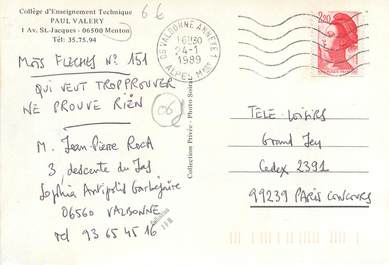 Collège d'Enseignement Technique
PAUL VALERY
1 Av. St.-Jacques - 06500 Menton
Tél: 35.75.94
66
06 VALBONNE ANNEXE 1
16H30
24-1
1989
ALPES Mmes
2,20
MOTS FLECHES N° 151
QUI VEUT TROP PROUVER
NE PROUVE RIEN
06
M. Jean-Pierre ROCA
3, descente du Jas
Sophia Antipolis Garbejaïre
06560 VALBONNE
Tel 93 65 45 16
Collection Privée - Photo
TELE-LOISIRS
Grand Jeu
Cedex 2391
99239 PARIS CONCOURS